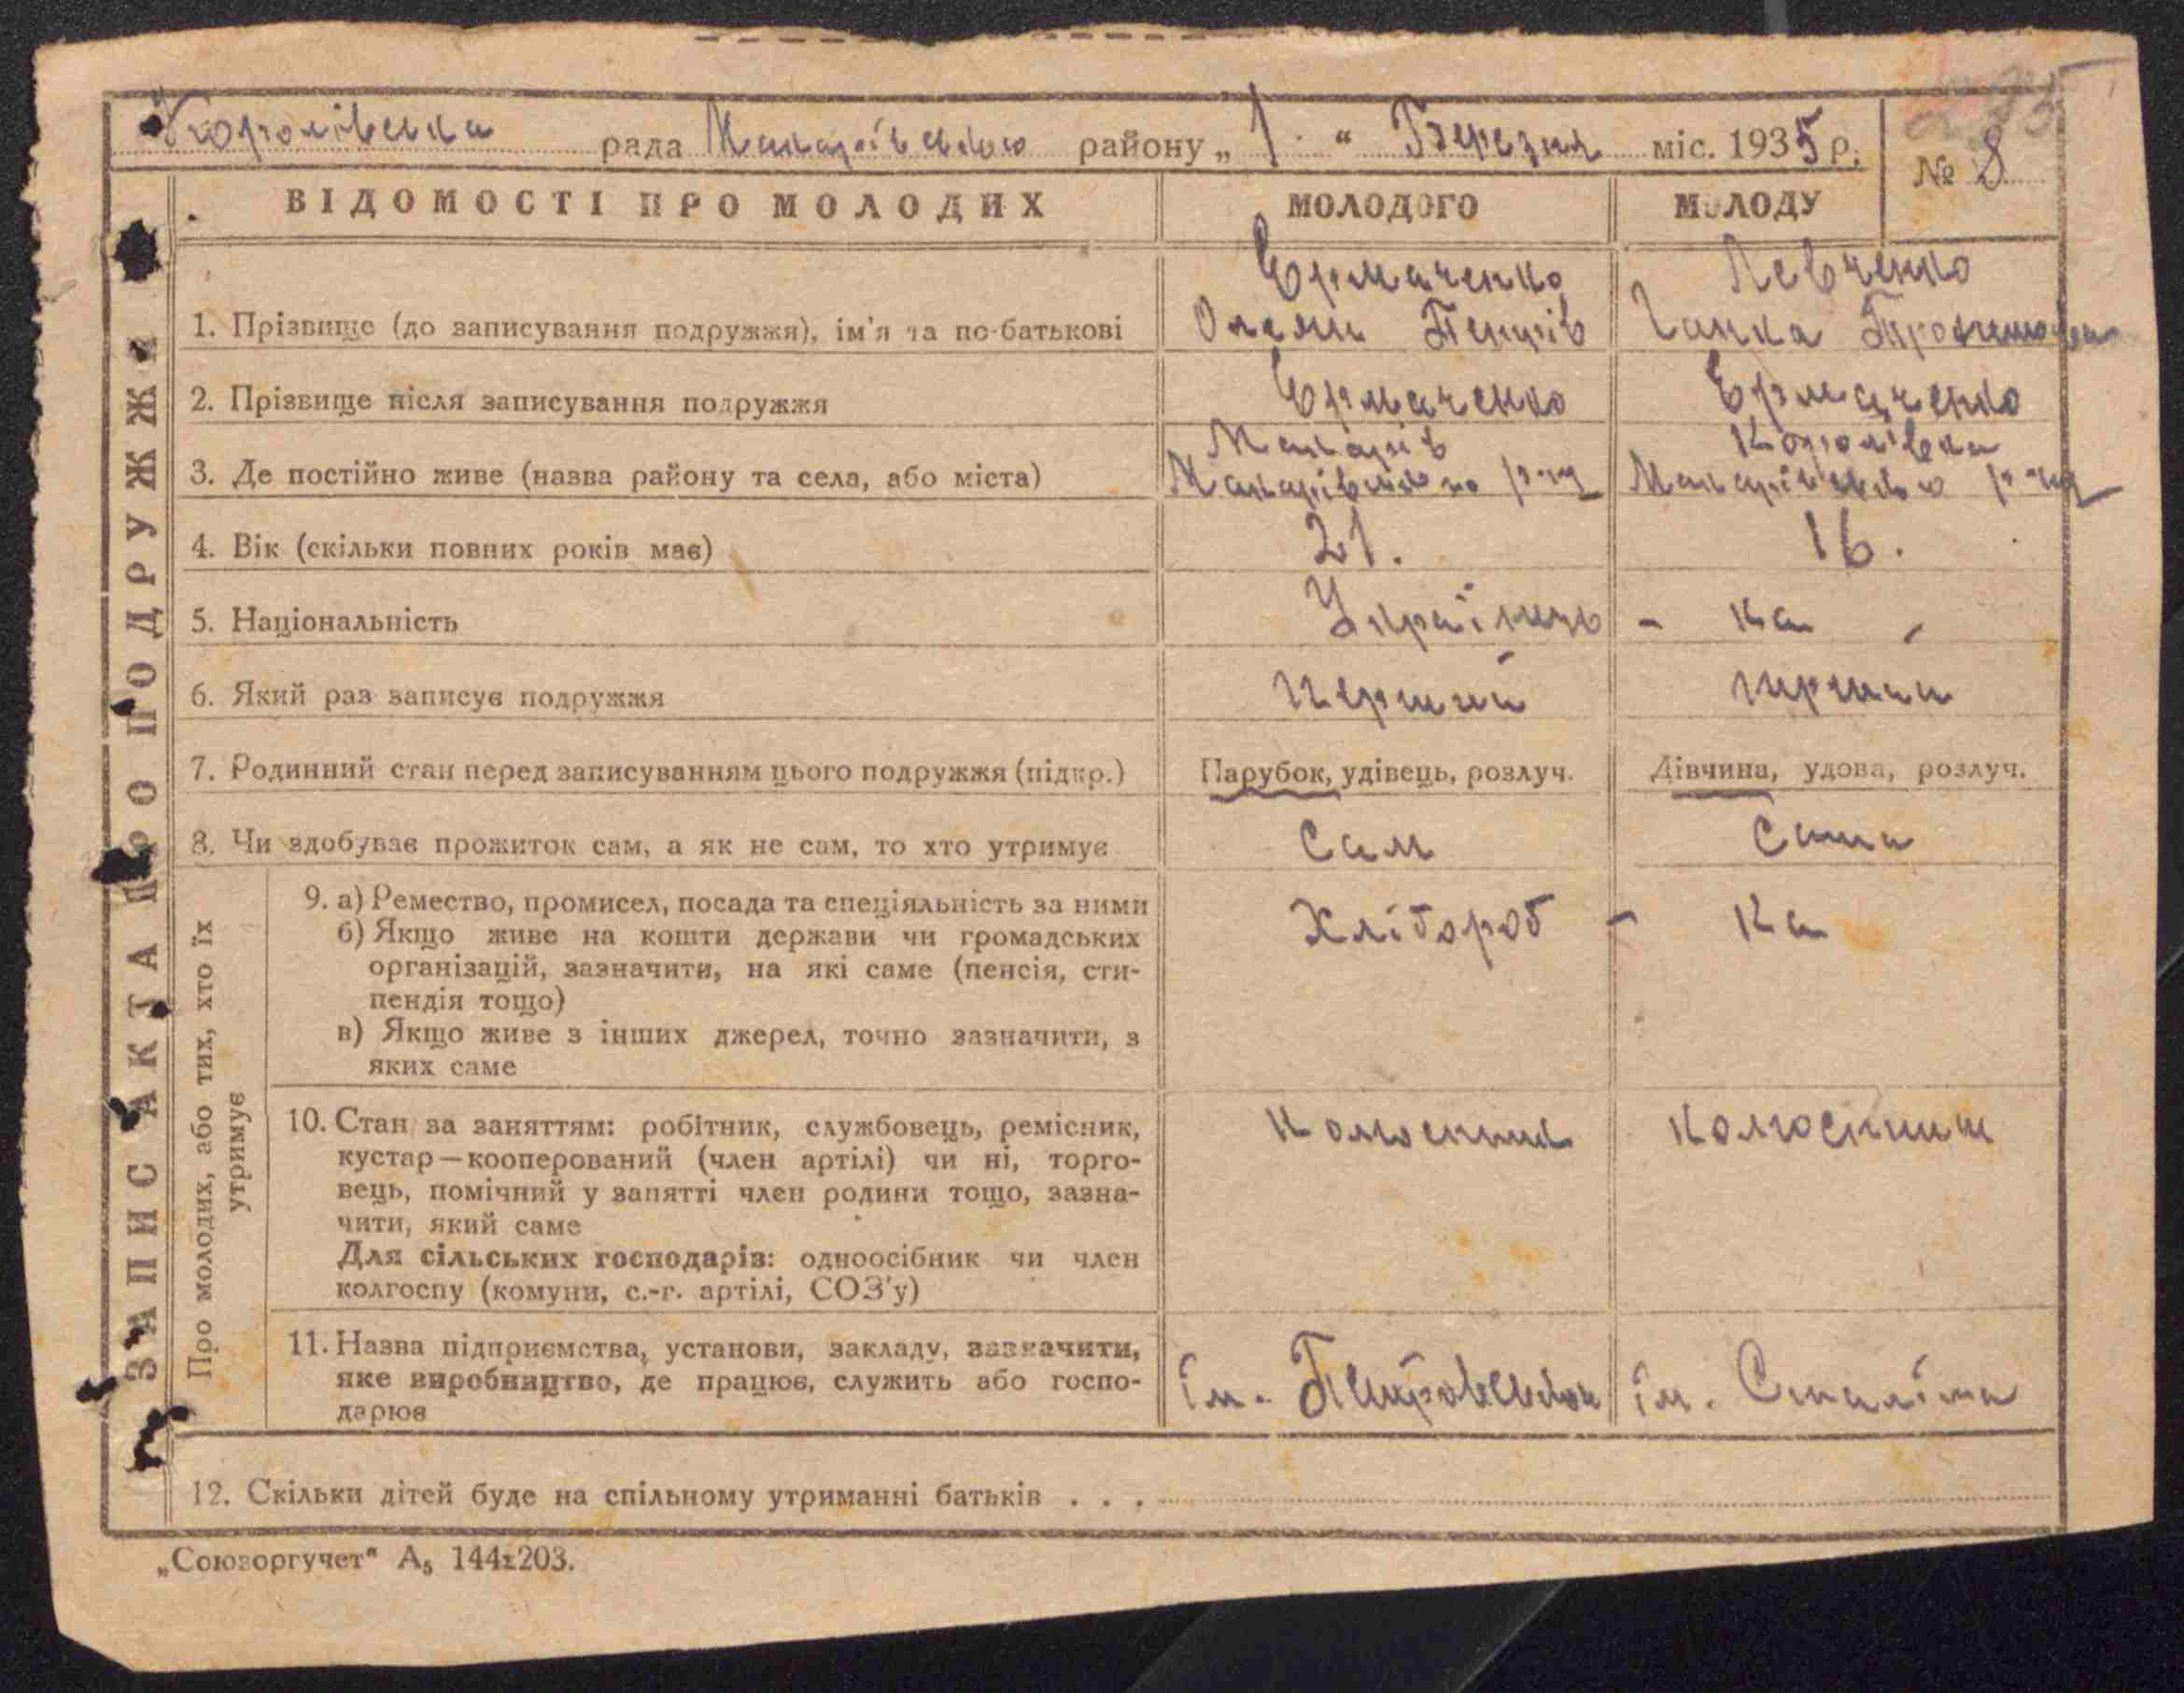 Королівська рада Макарівського району „1“ Березня міс. 1935 р.
№ 8
ВІДОМОСТІ ПРО МОЛОДИХ МОЛОДОГО МОЛОДУ
ЗАПИС АКТА ПРО ПОДРУЖЖЯ
1. Прізвище (до записування подружжя), ім'я та по-батькові
Єрмаченко
Петрів
Левченко
Ганка Трохимова
2. Прізвище після записування подружжя Єрмаченко Єрмаченко
3. Де постійно живе (назва району та села, або міста)
Макарів
Макарівського р-ну
Королівка
Макарівського р-ну
4. Вік (скільки повних років має) 21. 16.
5. Національність Українець - ка
6. Який раз записує подружжя перший перший
7. Родинний стан перед записуванням цього подружжя (підкр.) Парубок, удівець, розлуч. Дівчина, удова, розлуч.
8. Чи здобуває прожиток сам, а як не сам, то хто утримує Сам Сама
Про молодих, або тих, хто їх
утримує
9. а) Ремество, промисел, посада та спеціяльність за ними
б) Якщо живе на кошти держави чи громадських
організацій, зазначити, на які саме (пенсія, сти-
пендія тощо)
в) Якщо живе з інших джерел, точно зазначити, з
яких саме
Хлібороб - ка
10. Стан за заняттям: робітник, службовець, ремісник,
кустар—кооперований (член артілі) чи ні, торго-
вець, помічний у занятті член родини тощо, зазна-
чити, який саме
Для сільських господарів: одноосібник чи член
колгоспу (комуни, с.-г. артілі, СОЗ'у)
колгоспник
11. Назва підприємства, установи, закладу, зазначити,
яке виробництво, де працює, служить або госпо-
дарює
ім. Петровського ім. Сталіна
12. Скільки дітей буде на спільному утриманні батьків . . .
„Союзоргучет" А₅ 144х203.